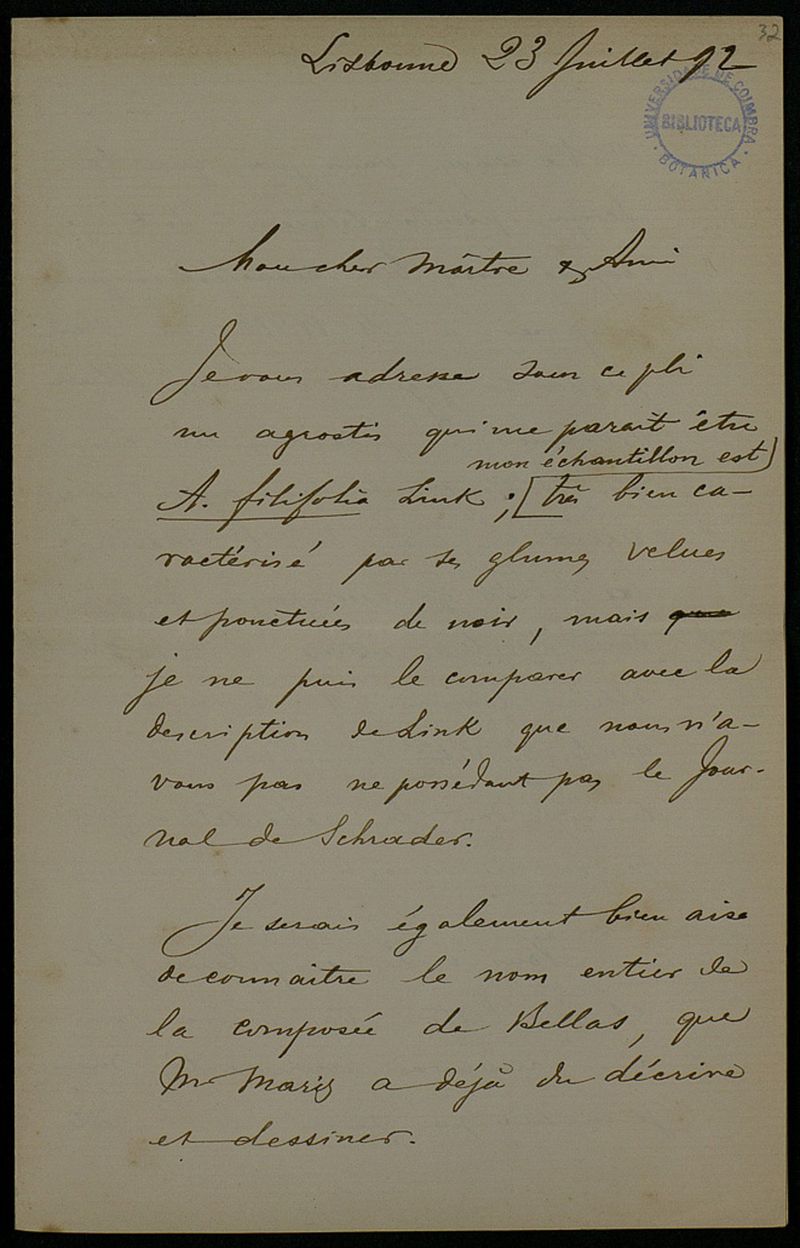 32
Lisbonne 23 Juillet 92
UNIVERSIDADE DE COIMBRA
BIBLIOTECA
BOTANICA
Mon cher Maître & Ami
Je vous adresse sous ce pli
un agrostis qui me parait être
mon échantillon est
A. filifolia Link ; très bien ca-
ractérisé par ses glumes velues
et ponctuées de noir, mais que
je ne puis le comparer avec la
description de Link que nous n'a-
vons pas ne possédant pas le Jour-
nal de Schrader.
Je serais également bien aise
de connaitre le nom entier de
la composée de Bellas, que
Mr Mariz a déjà du décrire
et dessiner.